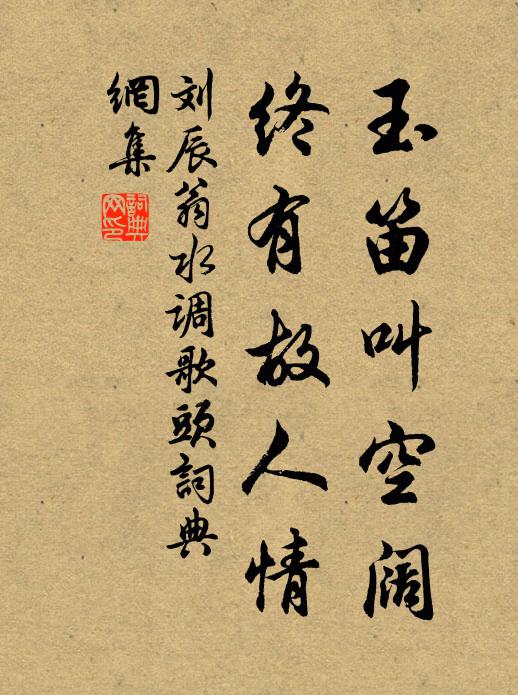 玉笛叫空阔
终有故人情
刘辰翁水调歌頭詞典
網集
詞典
网印